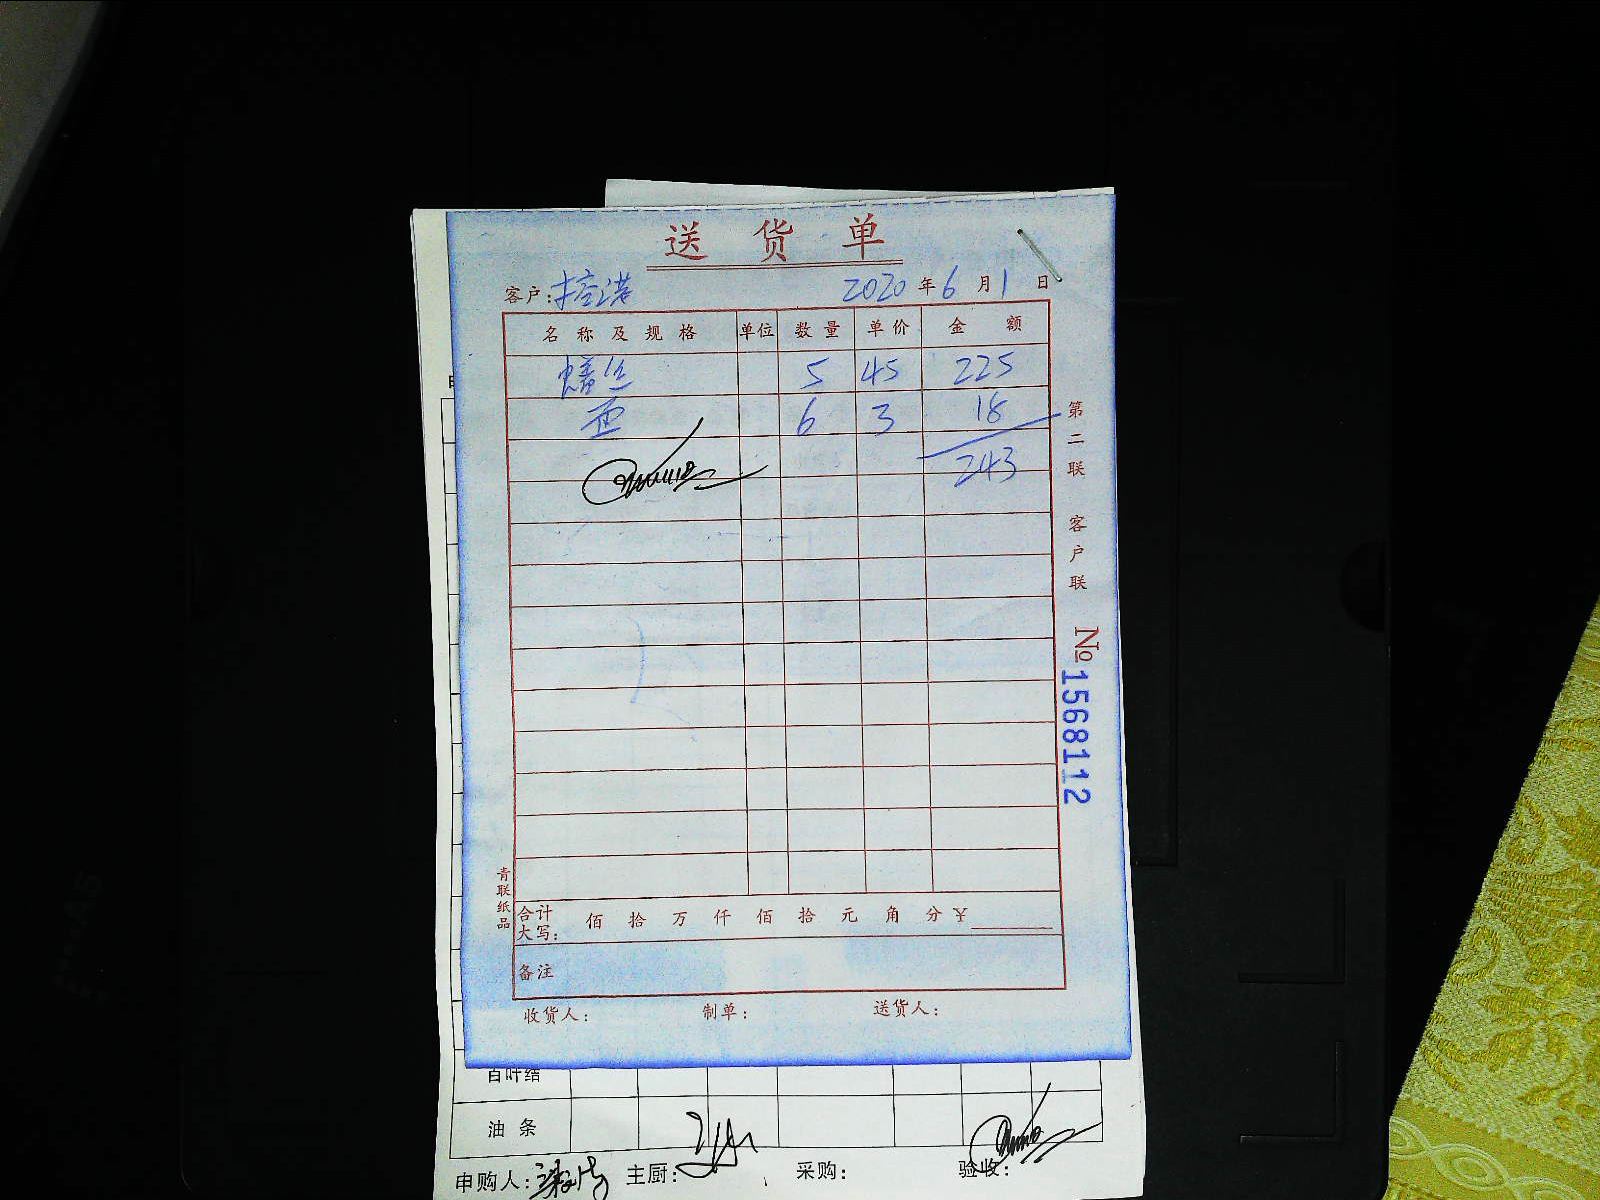 送货单
客户: 2020年6月1日
名称及规格 单位 数量 单价 金额
5 45 225
6 3 18
243
第二联 客户联
№1568112
青联纸品
合计大写: 佰 拾 万 仟 佰 拾 元 角 分 ¥
备注
收货人: 制单: 送货人:
百叶结
油条
申购人: 主厨: 采购: 验收: